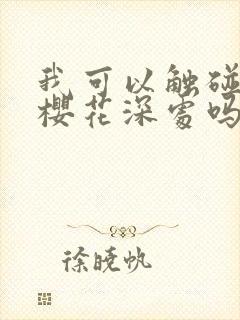 我可以触碰
樱花深处吗
徐晓帆